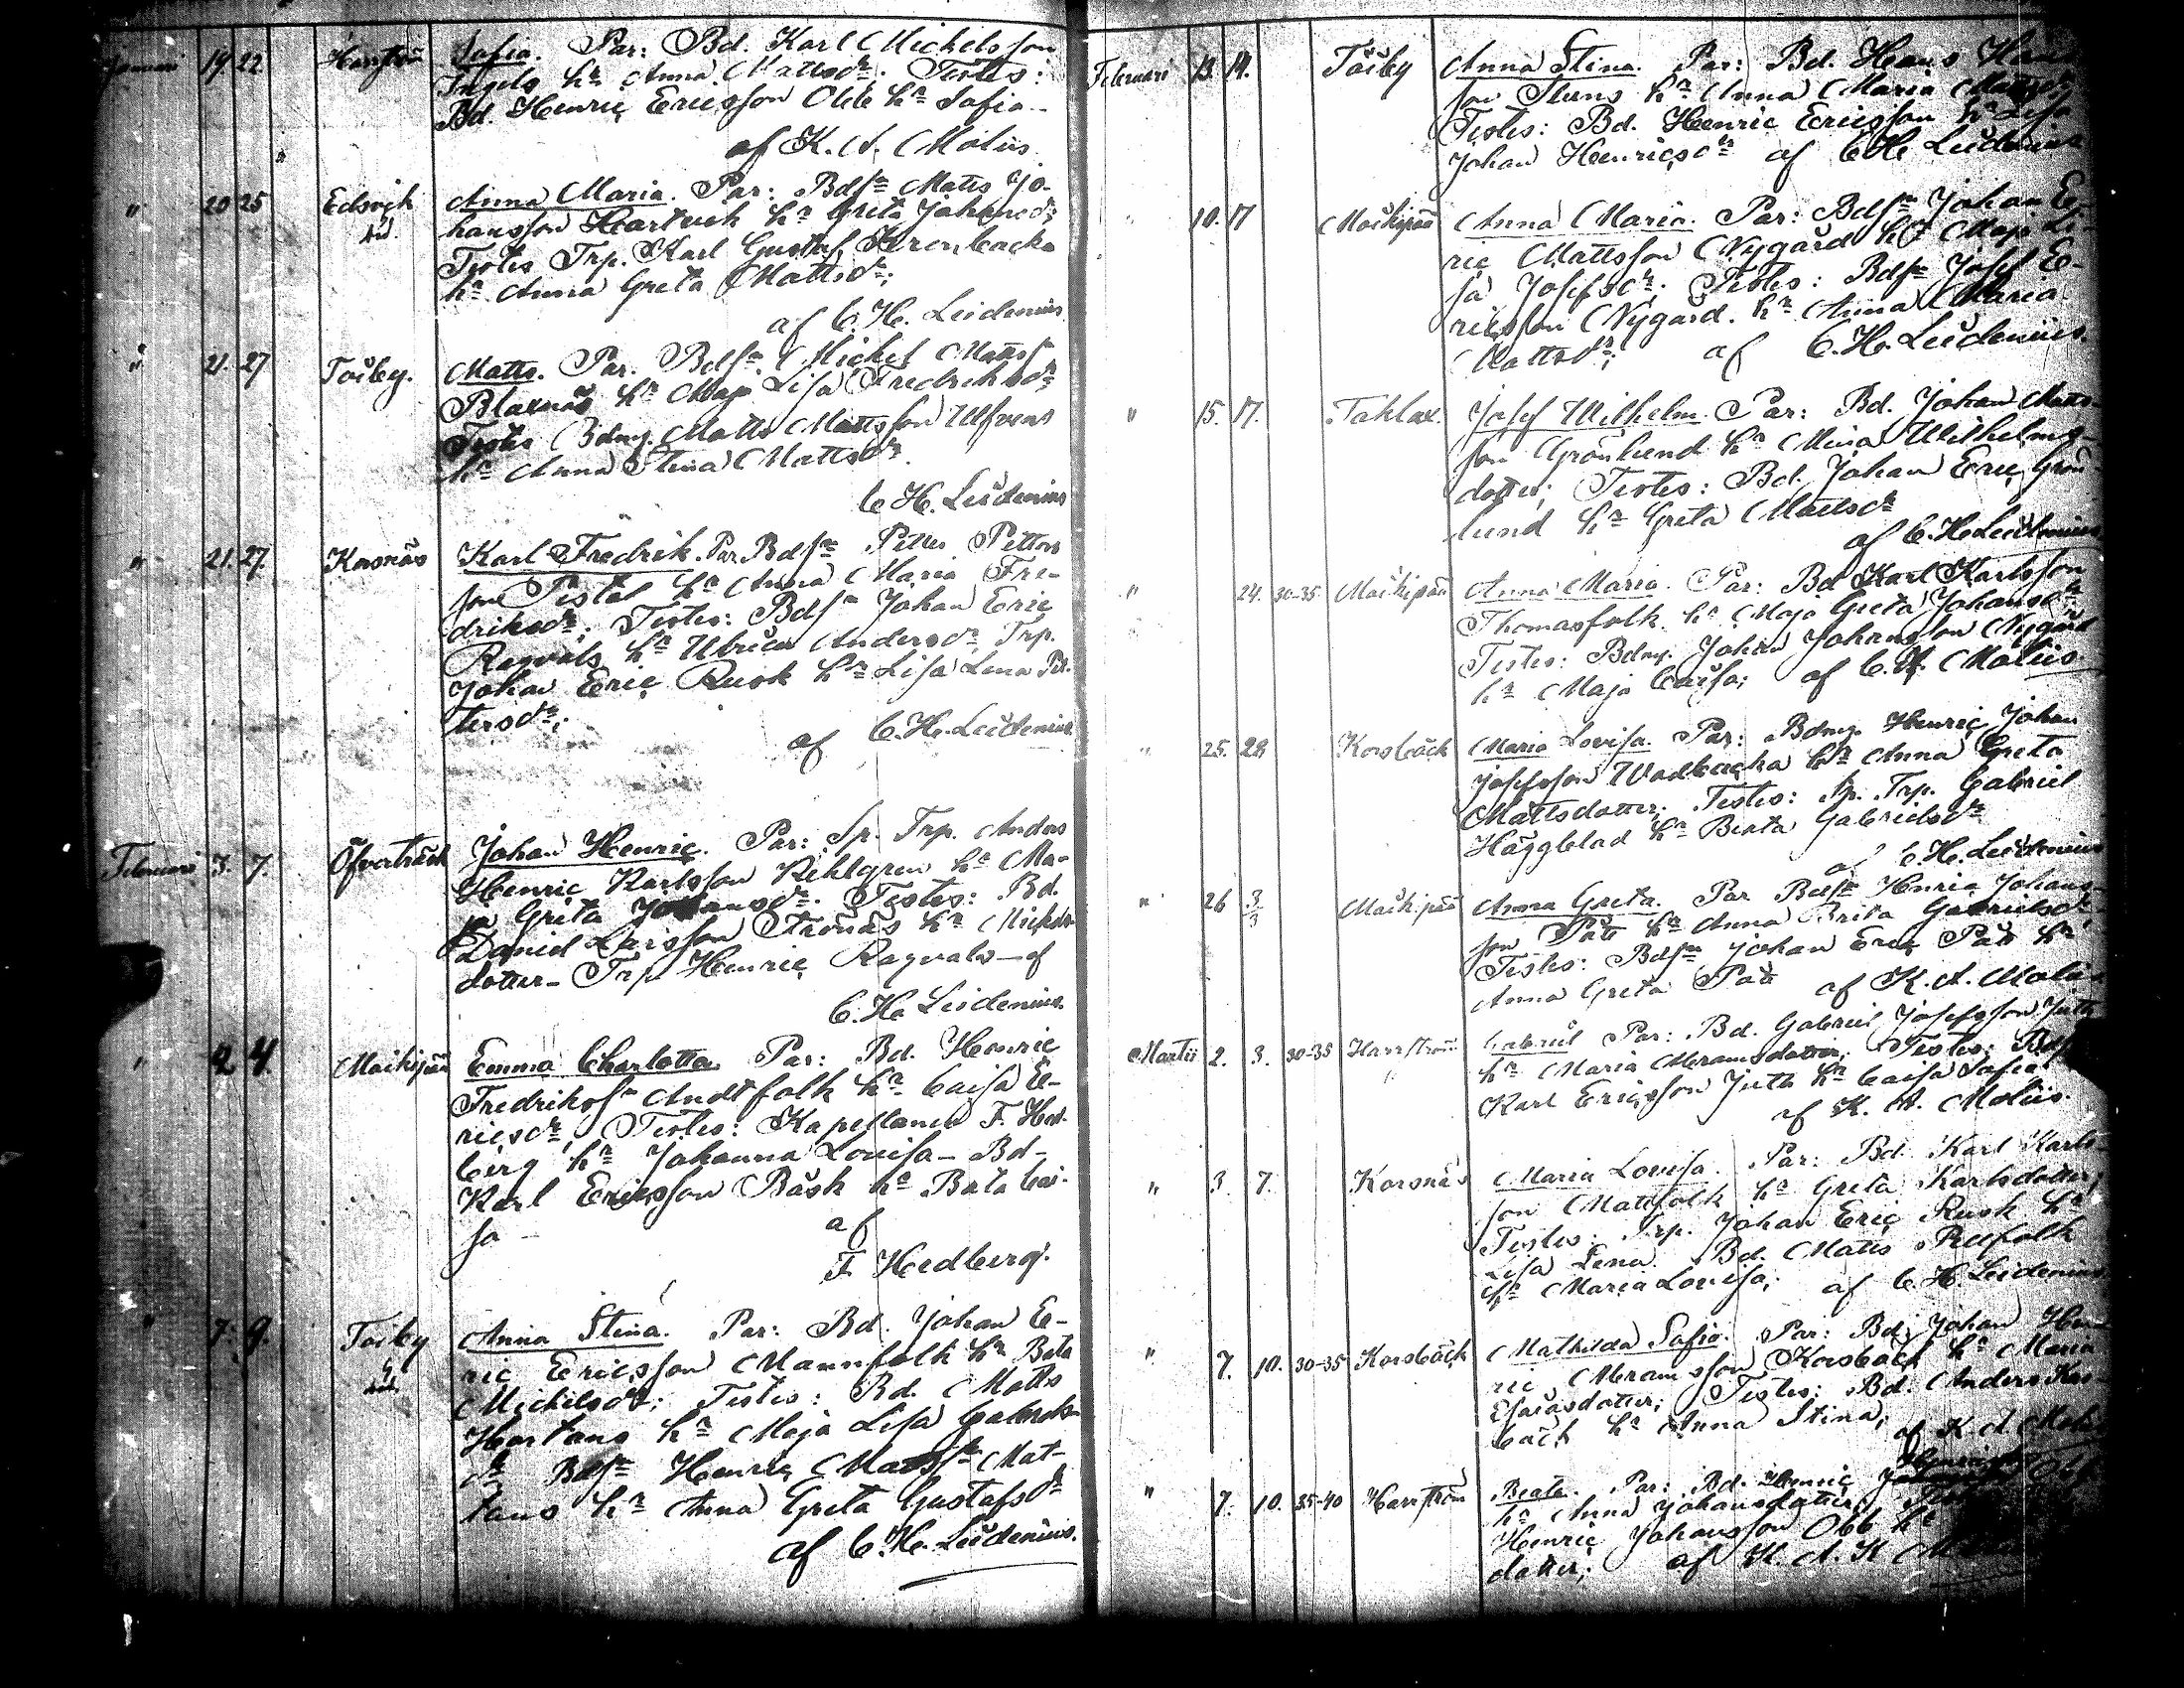 Januari 19 22 Harrström Sofia. Par: Bd. Karl Mickelsson
Ingels hr Anna Mattsdr. Testes:
Bd. Henric Ericsson Obb hr Sofia
af K. A. Molius.
" 20 25 Edsvik Anna Maria. Par: Bdsn Matts Jo-
hansson Hartvik hr Greta Johansdr
Testes Trp. Karl Gustaf Kronbacka
hr Anna Greta Mattsdr;
af C. H. Leidenius
" 21. 27 Töiby. Matts. Par. Bdsn Mickel Mattssn
Blaxnäs hr Maja Lisa Fredriksdr
Testes Bdmg. Matts Mattsson Ulfvens
hr Anna Stina Mattsdr.
C. H. Leidenius
" 21. 27. Korsnäs Karl Fredrik. Par. Bdsn Petter Petters
son Pistol hr Anna Maria Fre-
driksdr; Testes: Bdsn Johan Eric
Ragvals hr Ulrica Andersdr, Trp.
Johan Eric Rusk hr Lisa Lena Pet-
tersdr;
af C. H. Leidenius
Februari 3. 7. Öfverträsk Johan Henric. Par: Sp. Trp. Anders
Henric Karlsson Rehlgren hr Ma-
ja Greta Johansdr. Testes: Bd.
Daniel Larsson Strönäs hr Mickels
dotter - Trp Henric Ragvals - af
C. H. Leidenius.
" 2 4. Moikipää Emma Charlotta. Par: Bd. Henric
Fredrikssn Andtfolk hr Caisa E-
ricsdr, Testes: Kapellanen F. Hed-
berg hr Johanna Lovisa - Bd -
Karl Ericsson Bäsk hr Beata Cai-
sa -
af
F. Hedberg.
" 7. 9. Töiby Anna Stina. Par: Bd. Johan E-
ric Ericsson Mannfolk hr Beata
Mickelsdr; Testes: Bd. Matts
Hartans hr Maja Lisa Gabriels
dr Bdsn Henric Mattssn Mat-
tans hr Anna Greta Gustafsdr
af C. H. Leidenius.
Februari 13. 14. Töiby Anna Stina. Par: Bd. Hans Hans
son Stens hr Anna Maria Mattsdr
Testes: Bd. Henric Ericsson hr Lisa
Johan Henricsdr af C. H. Leidenius
" 10. 17 Moikipää Anna Maria. Par: Bdsn Johan E-
ric Mattsson Nygård hr Maja Li-
sa Josefsdr; Testes: Bdsn Josef E-
ricsson Nygård. hr Anna Maria
Mattsdr; af C. H. Leidenius.
" 15. 17. Taklax. Josef Wilhelm. Par: Bd. Johan Matts-
son Grönlund hr Mina Wilhelms-
dotter; Testes: Bd. Johan Eric Grön-
lund hr Greta Mattsdr
af C. H. Leidenius
" 24. 30-35 Moikipää Anna Maria. Par: Bd Karl Karlsson
Thomasfolk hr Maja Greta Johansdr
Testes: Bdmg. Johan Johansson Nygård
hr Maja Caisa; af C. A. Molius
" 25. 28 Korsbäck Maria Lovisa. Par: Bdmg. Henric Johan
Josefsson Wadbacka hr Anna Greta
Mattsdotter; Testes: Sp. Trp. Gabriel
Häggblad hr Beata Gabrielsdr
af C. H. Leidenius
" 26 3/3 Moikipää Anna Greta. Par Bdsn Henric Johans-
son Påt hr Anna Brita Gabrielsdr,
Testes: Bdsn Johan Eric Påt hr
Anna Greta Påt af K. A. Molius
Martii 2. 3. 30-35 Harrström Gabriel Par: Bd. Gabriel Josefsson Juth
hr Maria Meramsdotter; Testes: Bd
Karl Ericsson Juth hr Caisa Sofia
af K. A. Molius.
" 3. 7. Korsnäs Maria Lovisa. Par: Bd. Karl Karls-
son Mattfolk hr Greta Karlsdotter;
Testes: Trp. Johan Eric Rusk hr
Lisa Lena. Bd. Matts Prufolk
hr Maria Lovisa; af C. H. Leidenius
" 7. 10. 30-35 Korsbäck Mathilda Sofia. Par: Bd. Johan Hen-
ric Meramsson Korsbäck hr Maria
Esaiasdotter; Testes: Bd. Anders Kors-
bäck hr Anna Stina;
af K. A. Molius
" 7. 10. 35-40 Harrström Beata. Par: Bd. Henric Henricsson Obb
hr Anna Johansdotter;
Henric Johansson Obb hr
dotter; af K. A. K